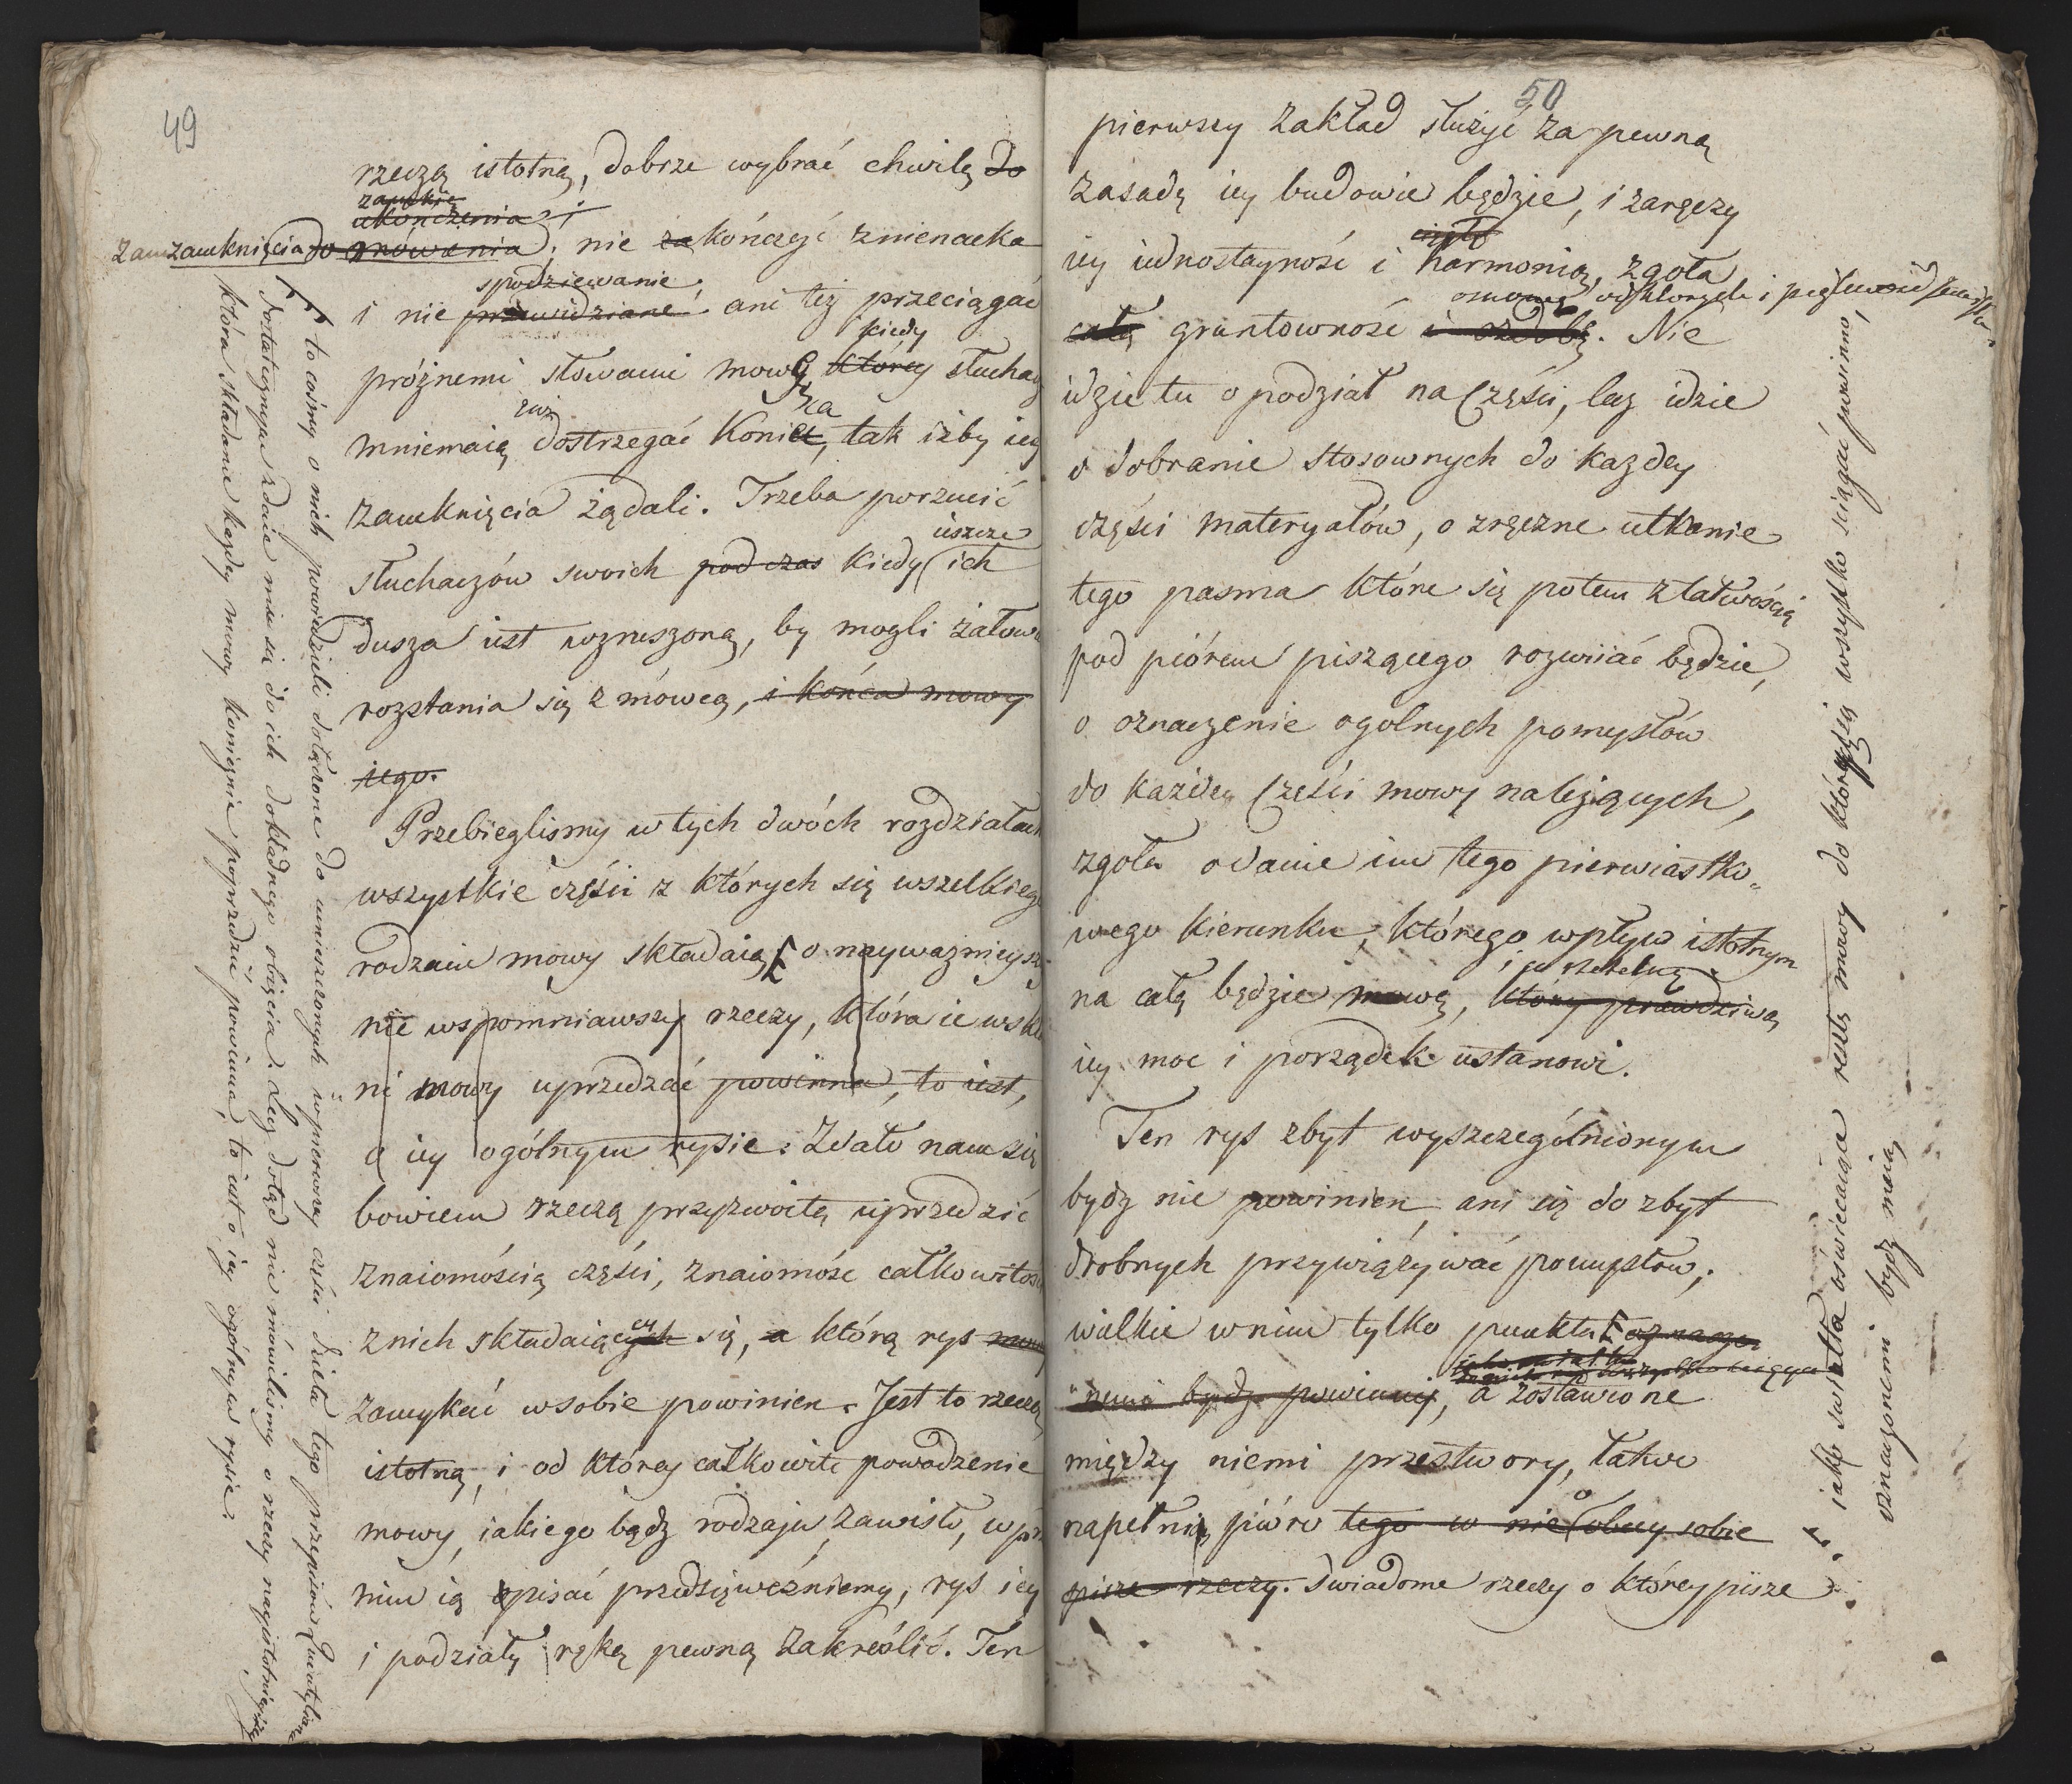 49
rzeczą istotną, dobrze wybrać chwilę do
zamknię
ukończenia i
zamknięcia do mówienia; nie zakończyć znienacka
spodziewanie
i nie przewidziane ani też przeciągać
kiedy
próżnemi słowami mowę, którey słuchacz
iuż ca
mniemaią dostrzegać koniec, tak iżby iey
zamknięcia żądali. Trzeba porzucić
ieszcze
słuchaczów swoich podczas kiedy ich
dusza iest wzruszoną, by mogli żałow
rozstania się z mówcą, i końca mowy
iego.
Przebieglismy w tych dwóch rozdziałach
wszystkie części z których się wszelkiego
rodzaiu mowy składaią o nayważnieysz
nie wspomniawszy rzeczy, która ie wsk
ni mowy uprzedzać powinna, to iest,
o iey ogólnym rysie. Zdało nam się
bowiem rzeczą przyzwoitą uprzedzić
znaiomością części, znaiomość całkowitości
z nich składaiących się, a którą rys mowy
zamykać w sobie powinien. Jest to rzeczą
istotną, i od którey całkowite powodzenie
mowy, iakiego bądz rodzaju, zawisło, w prz
nim ią opisać przedsięweźniemy, rys iey
i podziały ręką pewną zakreślić. Ten
to cośmy o nich powiedzieli dołączone do umieszczonych w pierwszey części dzieła tego przepisów Quintyliana
dostatecznym zdaie mi się do ich dokładnego obięcia. Lecz dotąd nie mówilismy o rzeczy nayistotnieyszey
która składanie każdey mowy koniecznie poprzedzić powinna, to iest o iey ogólnym rysie.
50
pierwszy zakład służyć za pewną
zasadę iey budowie będzie, i zaręczy
iey iednostayność i harmonią, zgoła
osnowę
całą grantowność i ozdobę. Nie
idzie tu o podział na części, lecz idzie
o dobranie stosownych do każdey
części materyałów, o zręczne utkanie
tego pasma które się potem z łatwością
pod piórem piszącego rozwiiać będzie,
o oznaczenie ogolnych pomysłów
do każdey części mowy należących,
zgoła o danie im tego pierwiastko„
wego kierunku, którego wpływ istotnym
na całą będzie mowę, który prawdziwą
iey moc i porządek ustanowi.
Ten rys zbyt wyszczególnionym
bydz nie powinien, ani się do zbyt
drobnych przywiązywać pomysłów;
wielkie w nim tylko punkta oznaczo
„nemi bydz powinny, a zostawione
między niemi przestwory, łatwo
napełni pióro tego w nie obcey sobie
pisze rzeczy. świadome rzeczy o którey pisze
iako swiatła oświecaiące resztę mowy do których się wszystko ściągać powinno,
oznaczonemi bydz maią